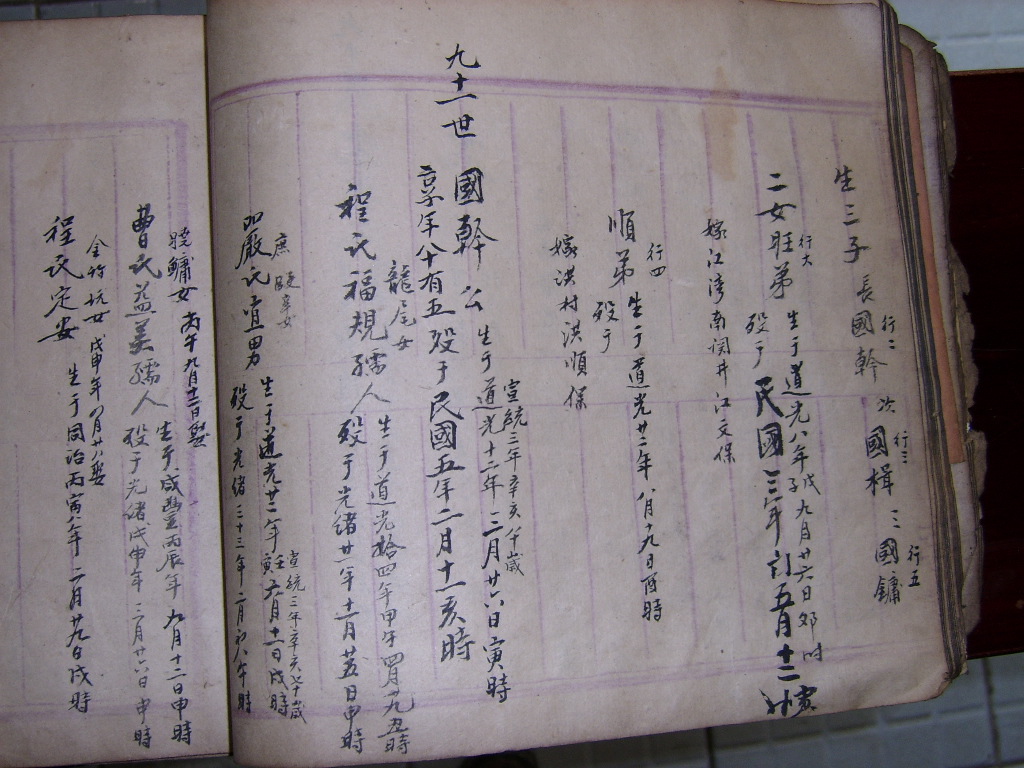 生三子 長國幹 行二 次國楫 行三 三國鏞 行五
二女旺弟 行大 生于道光八年戊子九月廿六日卯時
殁于民國三年 五月十二 寅時
嫁江湾南関井江文保
順弟 行四 生于道光廿二年八月十九日酉時
殁于
嫁洪村洪順保
九十一世 國幹公 生于道光十二年三月廿六日寅時
宣統三年辛亥八十歲
享年八十有五殁于民國五年二月十一亥時
龍尾女
程氏福規孺人 生于道光拾四年甲午四月九五時
殁于光緒廿一年十一月 五日申時
庶 女
嚴氏宜男 生于道光廿二年 六月十一日戌時
宣統三年辛亥七十歲
殁于光緒三十三年二月初八午時
曉鱅女 丙午九月十二日娶
曹氏益美孺人 生于咸豐丙辰年九月十二日申時
殁于光緒戊申年三月廿六日申時
金竹坑女 戊申年八月廿八娶
程氏定安 生于同治丙寅年二月廿九日戌時